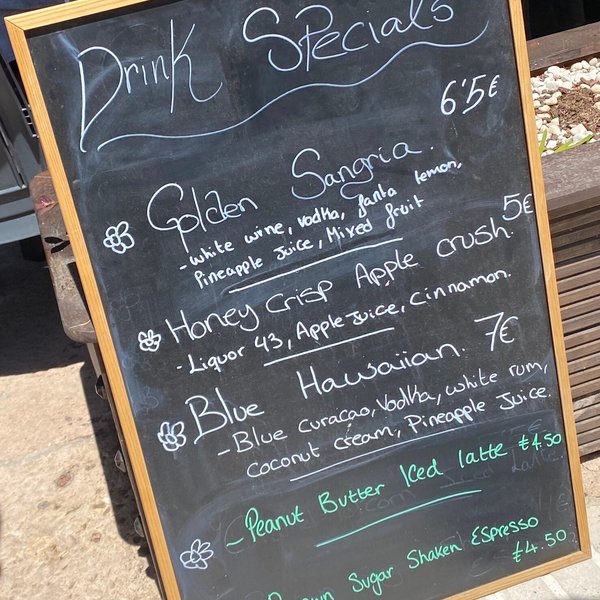 Drink Specials
6'5€
Golden Sangria.
- white wine, vodka, fanta lemon,
Pineapple Juice, Mixed fruit
5€
Honey Crisp Apple crush.
- Liquor 43, Apple Juice, Cinnamon.
Blue Hawaiian. 7€
- Blue curaçao, Vodka, white rum,
coconut cream, Pineapple Juice.
- Peanut Butter Iced latte €4.50
Sugar Shaken Espresso
€4.50